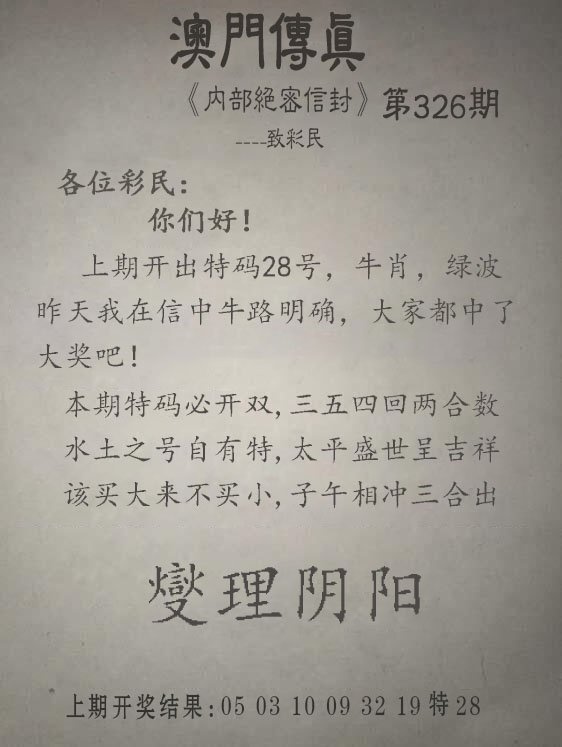 澳門傳眞
《内部絕密信封》第326期
----致彩民
各位彩民:
你们好!
上期开出特码28号，牛肖，绿波
昨天我在信中牛路明确，大家都中了
大奖吧!
本期特码必开双,三五四回两合数
水土之号自有特,太平盛世呈吉祥
该买大来不买小,子午相冲三合出
燮理阴阳
上期开奖结果:05 03 10 09 32 19 特 28